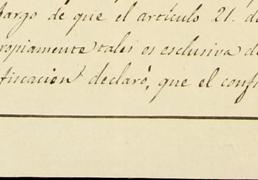 bargo de que el artículo 21. d
ropiamente tales es esclusiva d
fiscacion declaró, que el confi